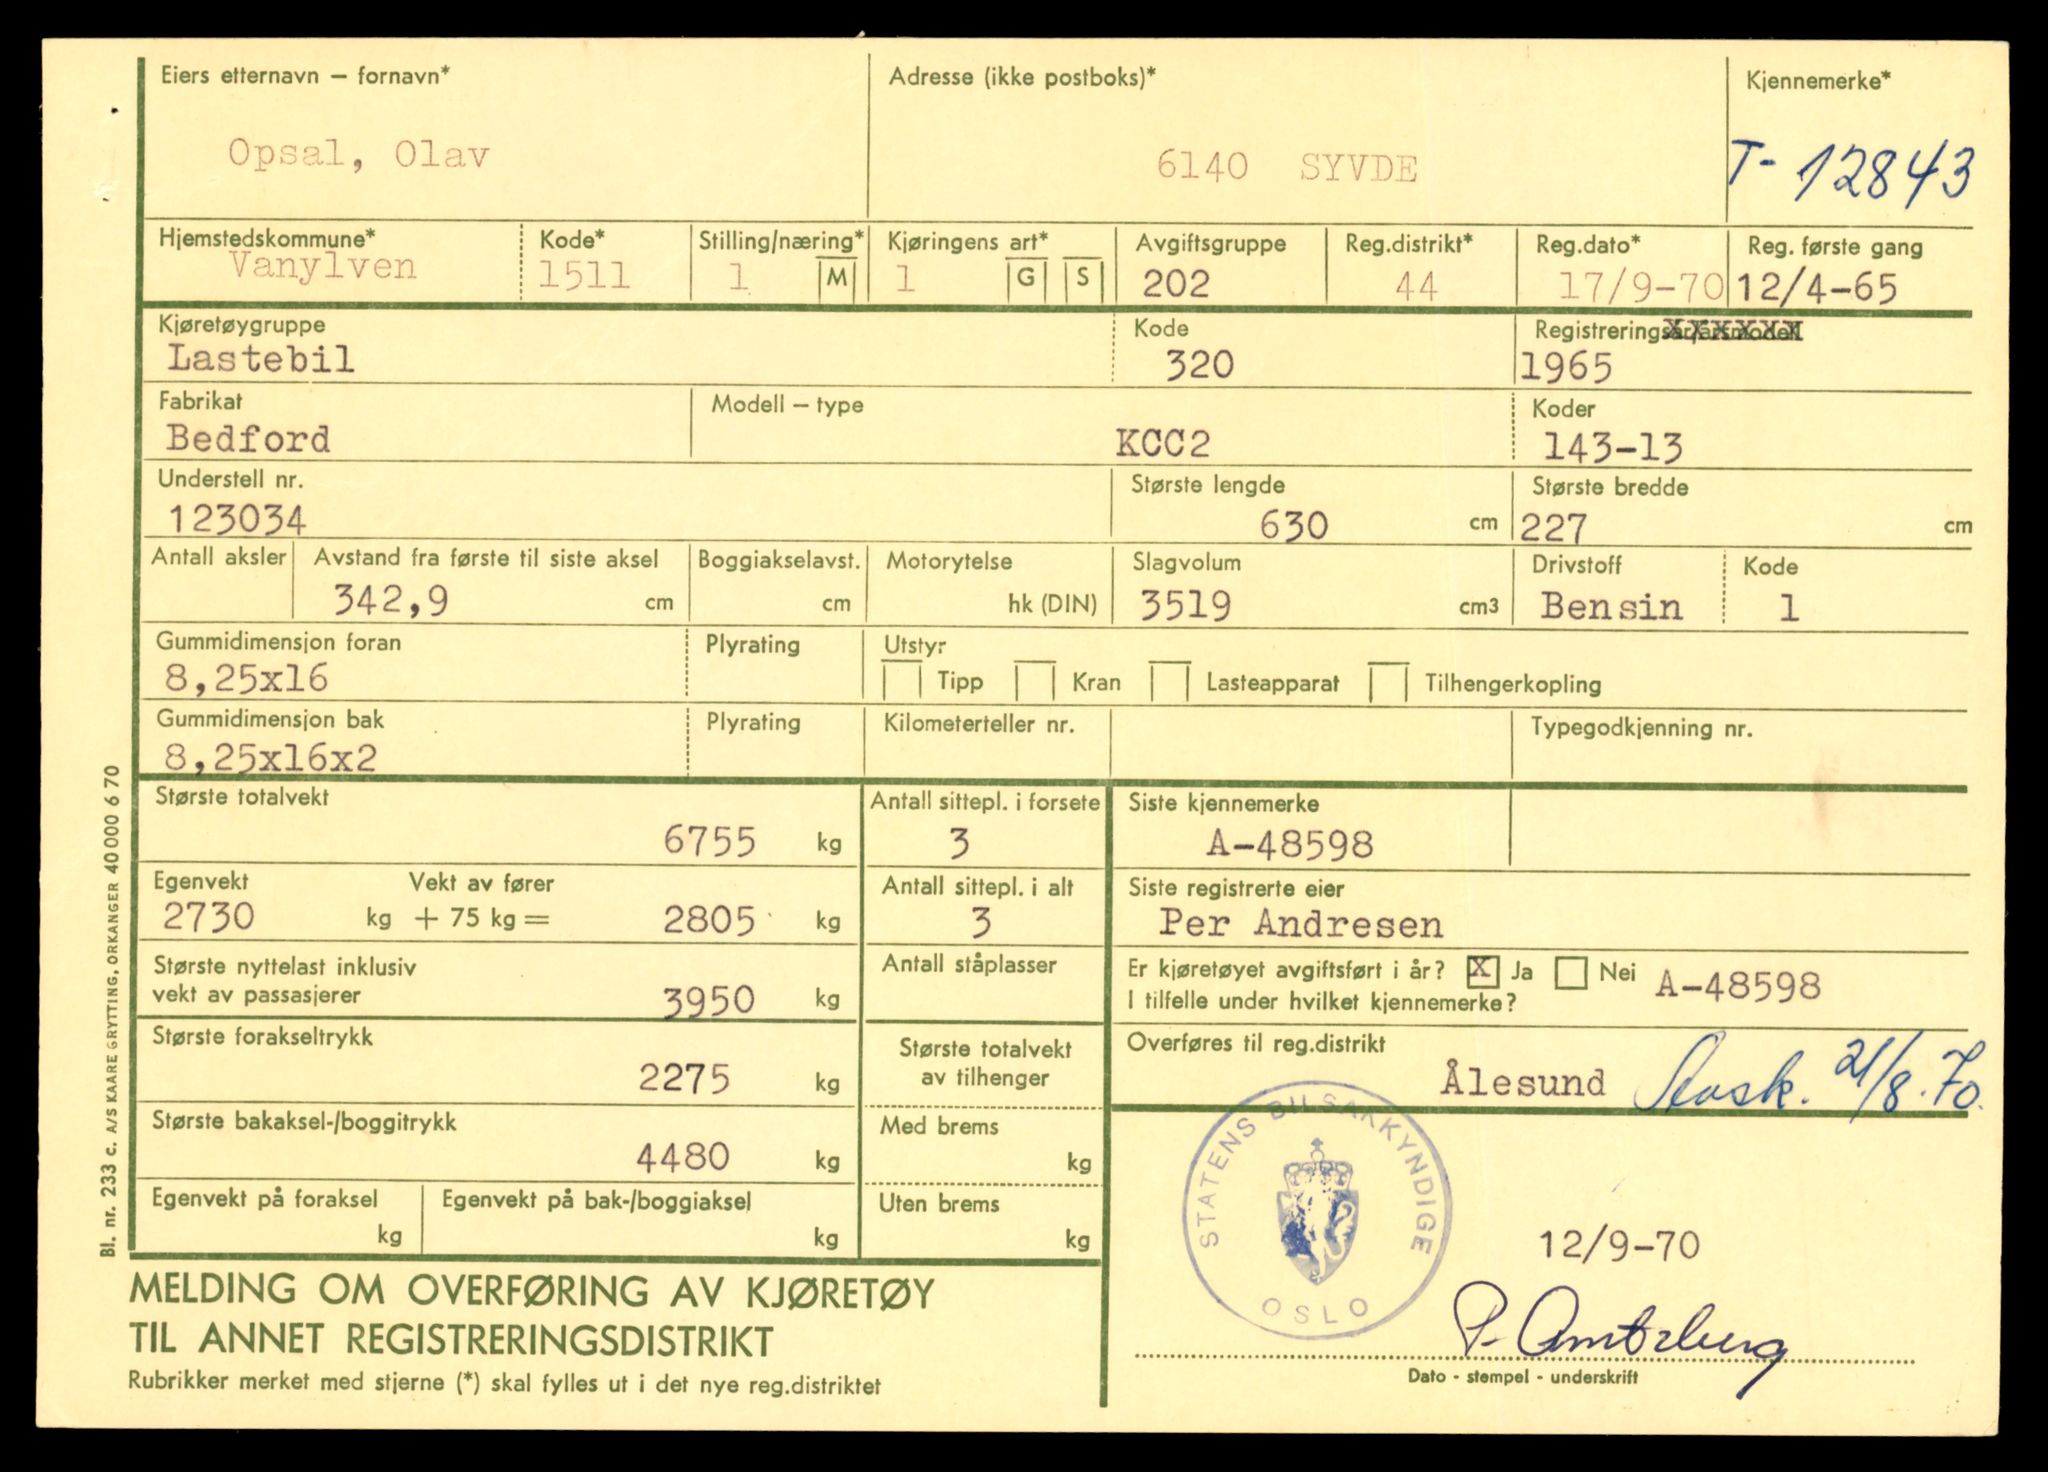 Eiers etternavn – fornavn*
Opsal, Olav
Adresse (ikke postboks)*
6140 SYVDE
Kjennemerke*
T- 12843
Hjemstedskommune*
Vanylven
Kode*
1511
Stilling/næring*
1 M
Kjøringens art*
1 G S
Avgiftsgruppe
202
Reg.distrikt*
44
Reg.dato*
17/9-70
Reg. første gang
12/4-65
Kjøretøygruppe
Lastebil
Kode
320
Registreringsår/årsmodell
1965
Fabrikat
Bedford
Modell – type
KCC2
Koder
143-13
Understell nr.
123034
Største lengde
630 cm
Største bredde
227 cm
Antall aksler
Avstand fra første til siste aksel
342,9 cm
Boggiakselavst.
cm
Motorytelse
hk (DIN)
Slagvolum
3519 cm3
Drivstoff
Bensin
Kode
1
Gummidimensjon foran
8,25x16
Plyrating
Utstyr
Tipp Kran Lasteapparat Tilhengerkopling
Gummidimensjon bak
8,25x16x2
Plyrating
Kilometerteller nr.
Typegodkjenning nr.
Største totalvekt
6755 kg
Antall sittepl. i forsete
3
Siste kjennemerke
A-48598
Egenvekt Vekt av fører
2730 kg + 75 kg = 2805 kg
Antall sittepl. i alt
3
Siste registrerte eier
Per Andresen
Største nyttelast inklusiv
vekt av passasjerer 3950 kg
Antall ståplasser
Er kjøretøyet avgiftsført i år? X Ja Nei A-48598
I tilfelle under hvilket kjennemerke?
Største forakseltrykk
2275 kg
Største totalvekt
av tilhenger
Overføres til reg.distrikt
Ålesund 21/8.70.
Største bakaksel-/boggitrykk
4480 kg
Med brems
kg
Egenvekt på foraksel
kg
Egenvekt på bak-/boggiaksel
kg
Uten brems
kg
STATENS BILSAKKYNDIGE
OSLO
12/9-70
Dato - stempel - underskrift
MELDING OM OVERFØRING AV KJØRETØY
TIL ANNET REGISTRERINGSDISTRIKT
Rubrikker merket med stjerne (*) skal fylles ut i det nye reg.distriktet
Bl. nr. 233 c. A/S KAARE GRYTTING, ORKANGER 40 000 6 70